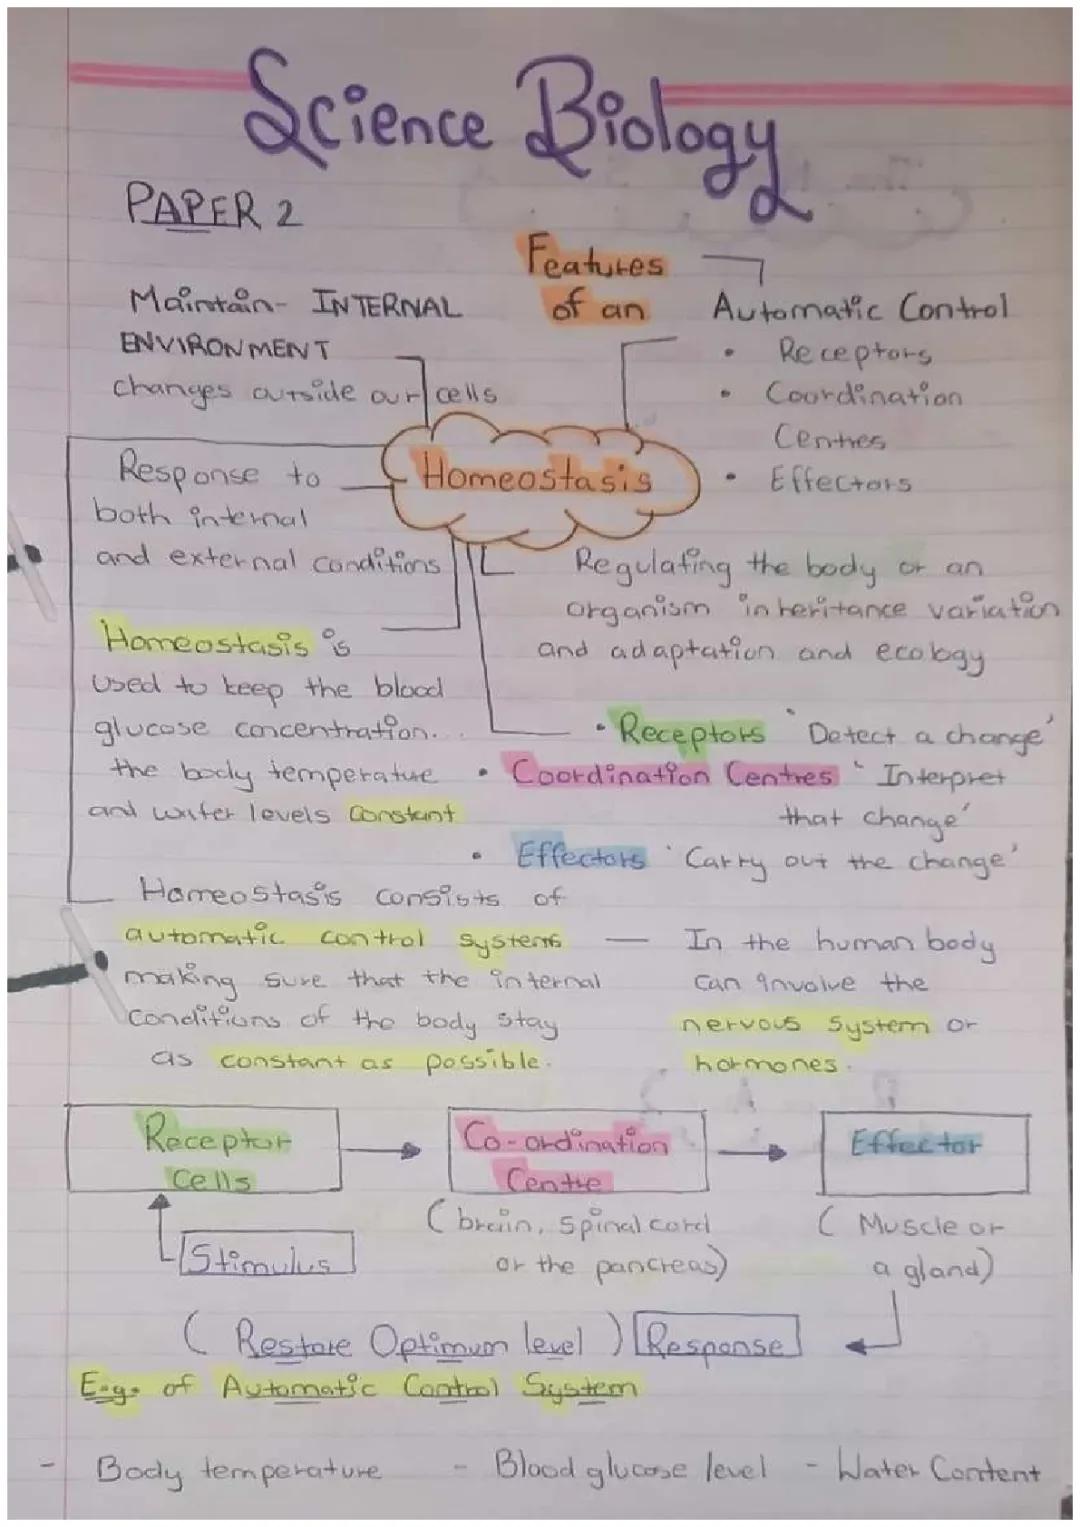 Science Biology
PAPER 2
Features
of an
Automatic Control
• Receptors
• Coordination
Centres
• Effectors
Maintain- INTERNAL
ENVIRONMENT
changes outside our cells
Homeostasis
Response to
both internal
and external conditions
Regulating the body or an
organism inheritance variation
and adaptation and ecology
Homeostasis is
used to keep the blood
glucose concentration...
the body temperature
and water levels constant
• Receptors 'Detect a change'
• Coordination Centres 'Interpret
that change'
• Effectors 'Carry out the change'
Homeostasis consists of
automatic control systems
making sure that the internal
conditions of the body stay
as constant as possible.
— In the human body
can involve the
nervous system or
hormones.
Receptor
Cells
Co-ordination
Centre
Effector
(brain, spinal cord
or the pancreas)
(Muscle or
a gland)
Stimulus
(Restore Optimum level) Response
E.g. of Automatic Control System
- Body temperature - Blood glucose level - Water Content